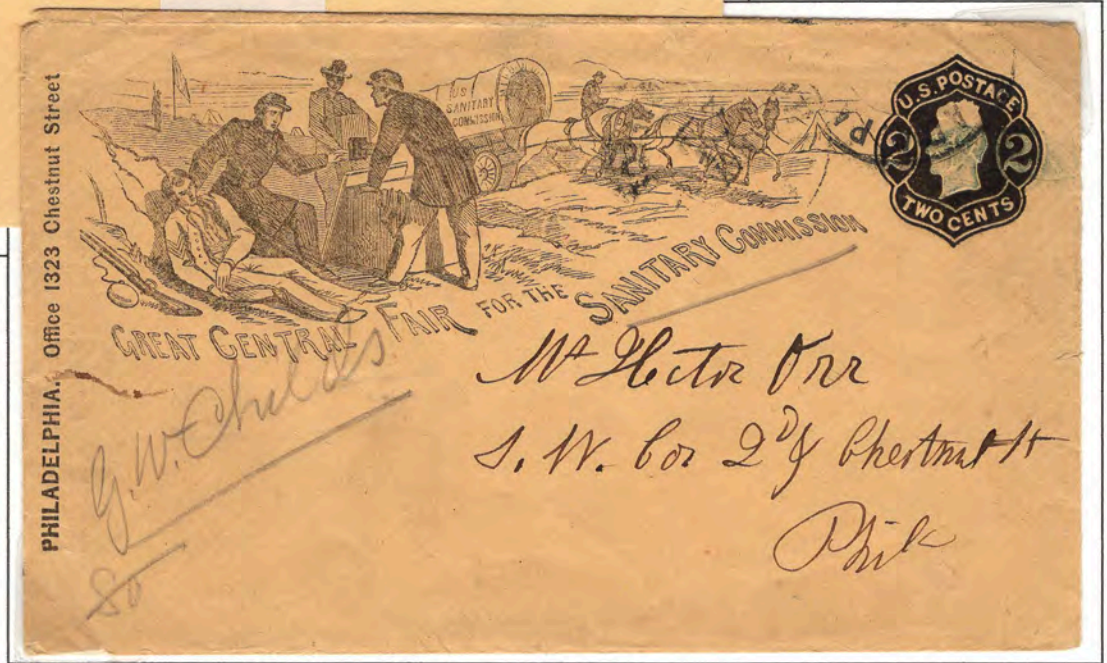 PHILADELPHIA. Office 1323 Chestnut Street
US
SANITARY
COMMISSION
PA
U.S. POSTAGE
2 2
TWO CENTS
GREAT CENTRAL FAIR FOR THE SANITARY COMMISSION
G.W. Childs
80
Mr Hector Orr
S. W. Cor 2d & Chestnut St
Phila